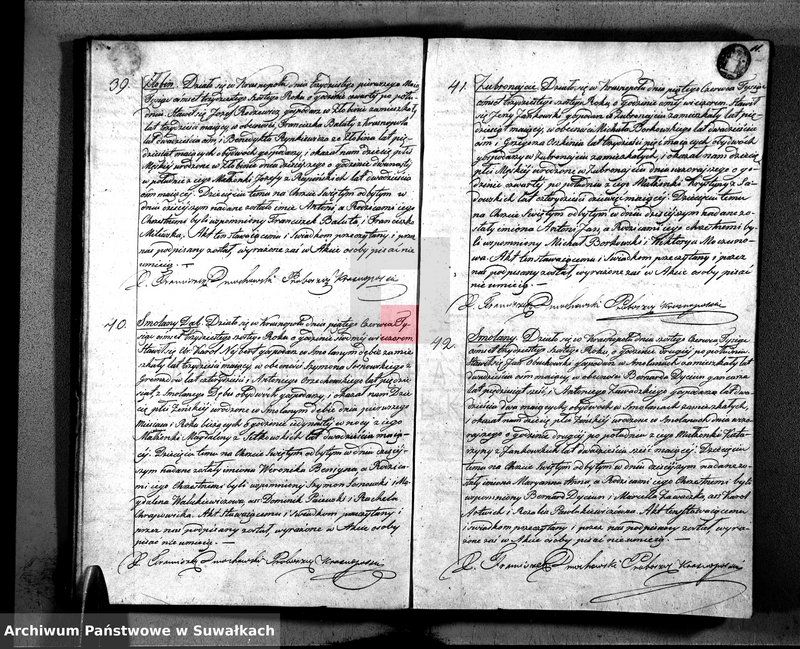 39. Żłobin. Działo się w Krasnopolu dnia trzydziestego pierwszego Maja
Tysiąc ośmset trzydziestego szóstego Roku o godzinie czwartej po połu
dniu. Stawił się Józef gospodarz w Żłobinie zamieszkały
lat trzydzieści mający w obecności Franciszka Baluty z Krasnopola
lat dwadzieścia ośm i Benedykta ze Żłobina lat pięć
dziesiąt mających obydwóch gospodarzy, i okazał nam dziecię płci
Męskiej urodzone w Żłobinie dnia dzisiejszego o godzinie
z południa z jego Małżonki Józefy z lat dwadzieścia
ośm mającej. Dziecięciu temu na Chrzcie Świętym odbytym w
dniu dzisiejszym nadane zostało imie Antoni a Rodzicami jego
Chrzestnemi byli wspomniony Franciszek Baluta i Franciszka
Akt ten stawającemu i Świadkom przeczytany i przez
nas podpisany został, wyrażone zaś w Akcie osoby pisać nie
umieją. —
X. Franciszek Dmochowski Proboszcz Krasnopolski
40. Smolany Dąb. Działo się w Krasnopolu dnia piątego Czerwca Ty
siąc ośmset trzydziestego szóstego Roku o godzinie siódmej wieczorem
Stawił się Karol gospodarz w Smolanym dębie zamie
szkały lat trzydzieści mający w obecności Szymona Sosnowskiego z
lat czterdzieści i Antoniego Orzechowskiego lat pięćdzie
siąt z Smolanego Dębu obydwóch gospodarzy, i okazał nam Dzie
cię płci Żeńskiej urodzone w Smolanym dębie dnia pierwszego
Miesiąca i Roku bieżących o godzinie jedynastej w nocy z jego
Małżonki Magdaleny z lat dwadzieścia mają
cej. Dziecięciu temu na Chrzcie Świętym odbytym w dniu dzisiej
szym nadane zostały imiona Weronika Benigna a Rodzica
mi jego Chrzestnemi byli wspomniony Szymon Sosnowski i Ma
gdalena Walukiewiczowa, Dominik i Rachela
Chrapowicka. Akt stawającemu i Świadkom przeczytany i
przez nas podpisany został wyrażone w Akcie osoby
pisać nie umieją. —
X. Franciszek Dmochowski Proboszcz Krasnopolski
41. Żubronajcie. Działo się w Krasnopolu dnia piątego Czerwca Tysiąc
ośmset trzydziestego szóstego Roku o godzinie ósmej wieczorem. Stawił
się Jerzy gospodarz w Żubronajciu zamieszkały lat pięć
dziesiąt mający, w obecności Michała Borkowskiego lat dwadzieścia
ośm i Grzegorza lat trzydzieści pięć mających obydwóch
gospodarzy w Żubronajciu zamieszkałych, i okazał nam dziecię
płci Męskiej urodzone w Żubronajciu dnia wczorajszego o go
dzinie czwartej po południu z jego Małżonki Krystyny z
lat czterdzieści dziewięć mającej. Dziecięciu temu
na Chrzcie Świętym odbytym w dniu dzisiejszym nadane zo
stały imiona Antoni Jan, a Rodzicami jego chrzestnemi by
li wspomniony Michał Borkowski i Wiktorya
Akt ten stawającemu i Świadkom przeczytany i przez
nas podpisany został, wyrażone zaś w Akcie osoby pisać
nie umieją. —
X. Franciszek Dmochowski Proboszcz Krasnopolski
42. Smolany. Działo się w Krasnopolu dnia piątego Czerwca Tysiąc
ośmset trzydziestego szóstego Roku, o godzinie drugiej po południu
Stawił się Jak gospodarz w Smolanach zamieszkały lat
dwadzieścia ośm mający, w obecności Bernarda Dyczun gospodarza
lat pięćdziesiąt sześć, i Antoniego Zawadzkiego gospodarza lat dwa
dzieścia dwa mających, obydwóch w Smolanach zamieszkałych,
i okazał nam dziecię płci Żeńskiej urodzone w Smolanach dnia wczo
rajszego o godzinie drugiej po południu z jego Małżonki Kata
rzyny z Jankowskich lat dwadzieścia sześć mającej. Dziecięciu
temu na Chrzcie Świętym odbytym w dniu dzisiejszym nadane zo
stały imiona Maryanna Anna, a Rodzicami jego Chrzestnemi byli
wspomniony Bernard Dyczun i Marcella Zawadzka, Karol
i Rozalia Pawlukiewiczowa. Akt ten stawającemu
i Świadkom przeczytany i przez nas podpisany został, wyra
żone zaś w Akcie osoby pisać nie umieją. —
X. Franciszek Dmochowski Proboszcz Krasnopolski
Archiwum Państwowe w Suwałkach